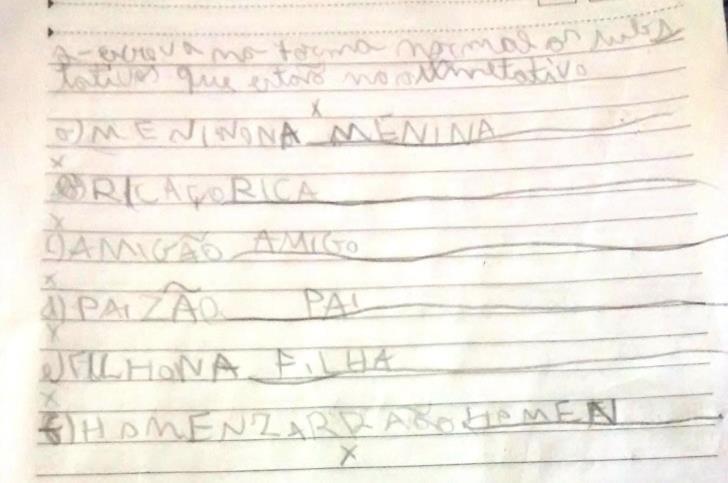 2-escreva na forma normal os subs
tativos que estão no aumetativo
a) MENINONA MENINA
b) RICAÇO RICA
c) AMIGÃO AMIGO
d) PAIZÃO PAI
e) FILHONA FILHA
f) HOMENZARRÃO HOMEN